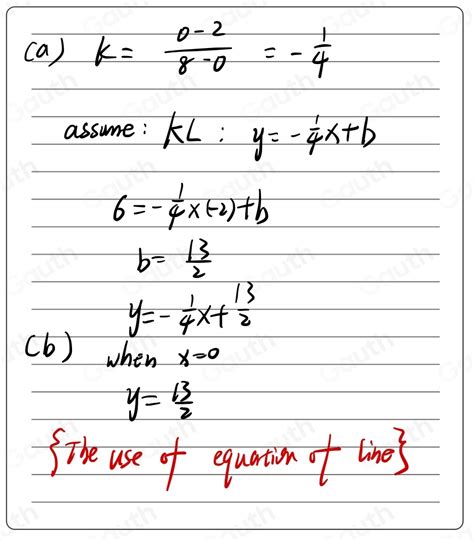 (a) k = 0-2 / 8-0 = - 1/4
assume: KL: y=-1/4x+b
6=-1/4x(-2)+b
b= 13/2
y=-1/4x+13/2
(b) when x=0
y= 13/2
{The use of equation of line}